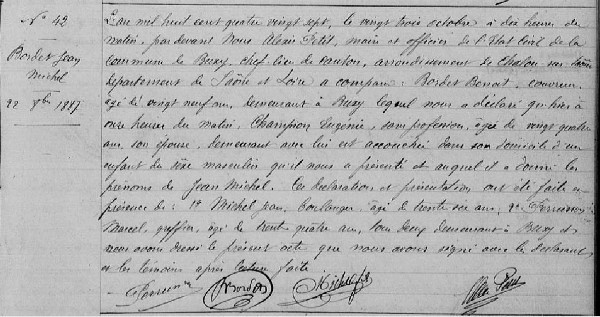 N° 43
Bordet Jean
Michel
22 8bre 1887
L'an mil huit cent quatre vingt sept, le vingt trois octobre à dix heures du
matin, par devant Nous Alexis Petit, maire et officier de l'Etat Civil de la
commune de Buxy, chef lieu de canton, arrondissement de Chalon sur Saône
département de Saône et Loire a comparu: Bordet Benoit, couvreur,
âgé de vingt neuf ans, demeurant à Buxy lequel nous a déclaré qu'hier à
onze heures du matin, Champion Eugénie, sans profession, âgée de vingt quatre
ans, son épouse, demeurant avec lui est accouchée dans son domicile d'un
enfant du sexe masculin qu'il nous a présenté et auquel il a donné les
prénoms de Jean Michel. Ces déclaration et présentation ont été faites en
présence de: 1° Michel Jean, boulanger, âgé de trente six ans; 2°
Marcel, greffier, âgé de trente quatre ans, tous deux demeurant à Buxy et
nous avons dressé le présent acte que nous avons signé avec le déclarant
et les témoins après lecture faite
Bordet
Michel J